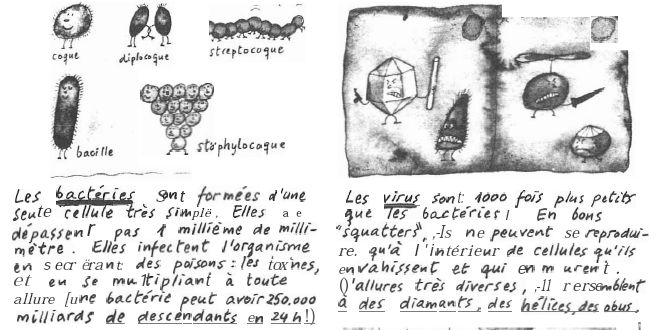 coque
diplocoque
streptocoque
bacille
staphylocoque
Les bactéries sont formées d'une
seule cellule très simple. Elles
dépassent pas 1 millième de milli-
mètre. Elles infectent l'organisme
en secrétant des poisons : les toxines,
et en se multipliant à toute
allure (une bactérie peut avoir 250.000
milliards de descendants en 24h!)
Les virus sont 1000 fois plus petits
que les bactéries! En bons
"squatters", ils ne peuvent se reprodui-
re qu'à l'intérieur de cellules qu'ils
envahissent et qui en meurent.
D'allures très diverses, ils ressemblent
à des diamants, des hélices, des obus.